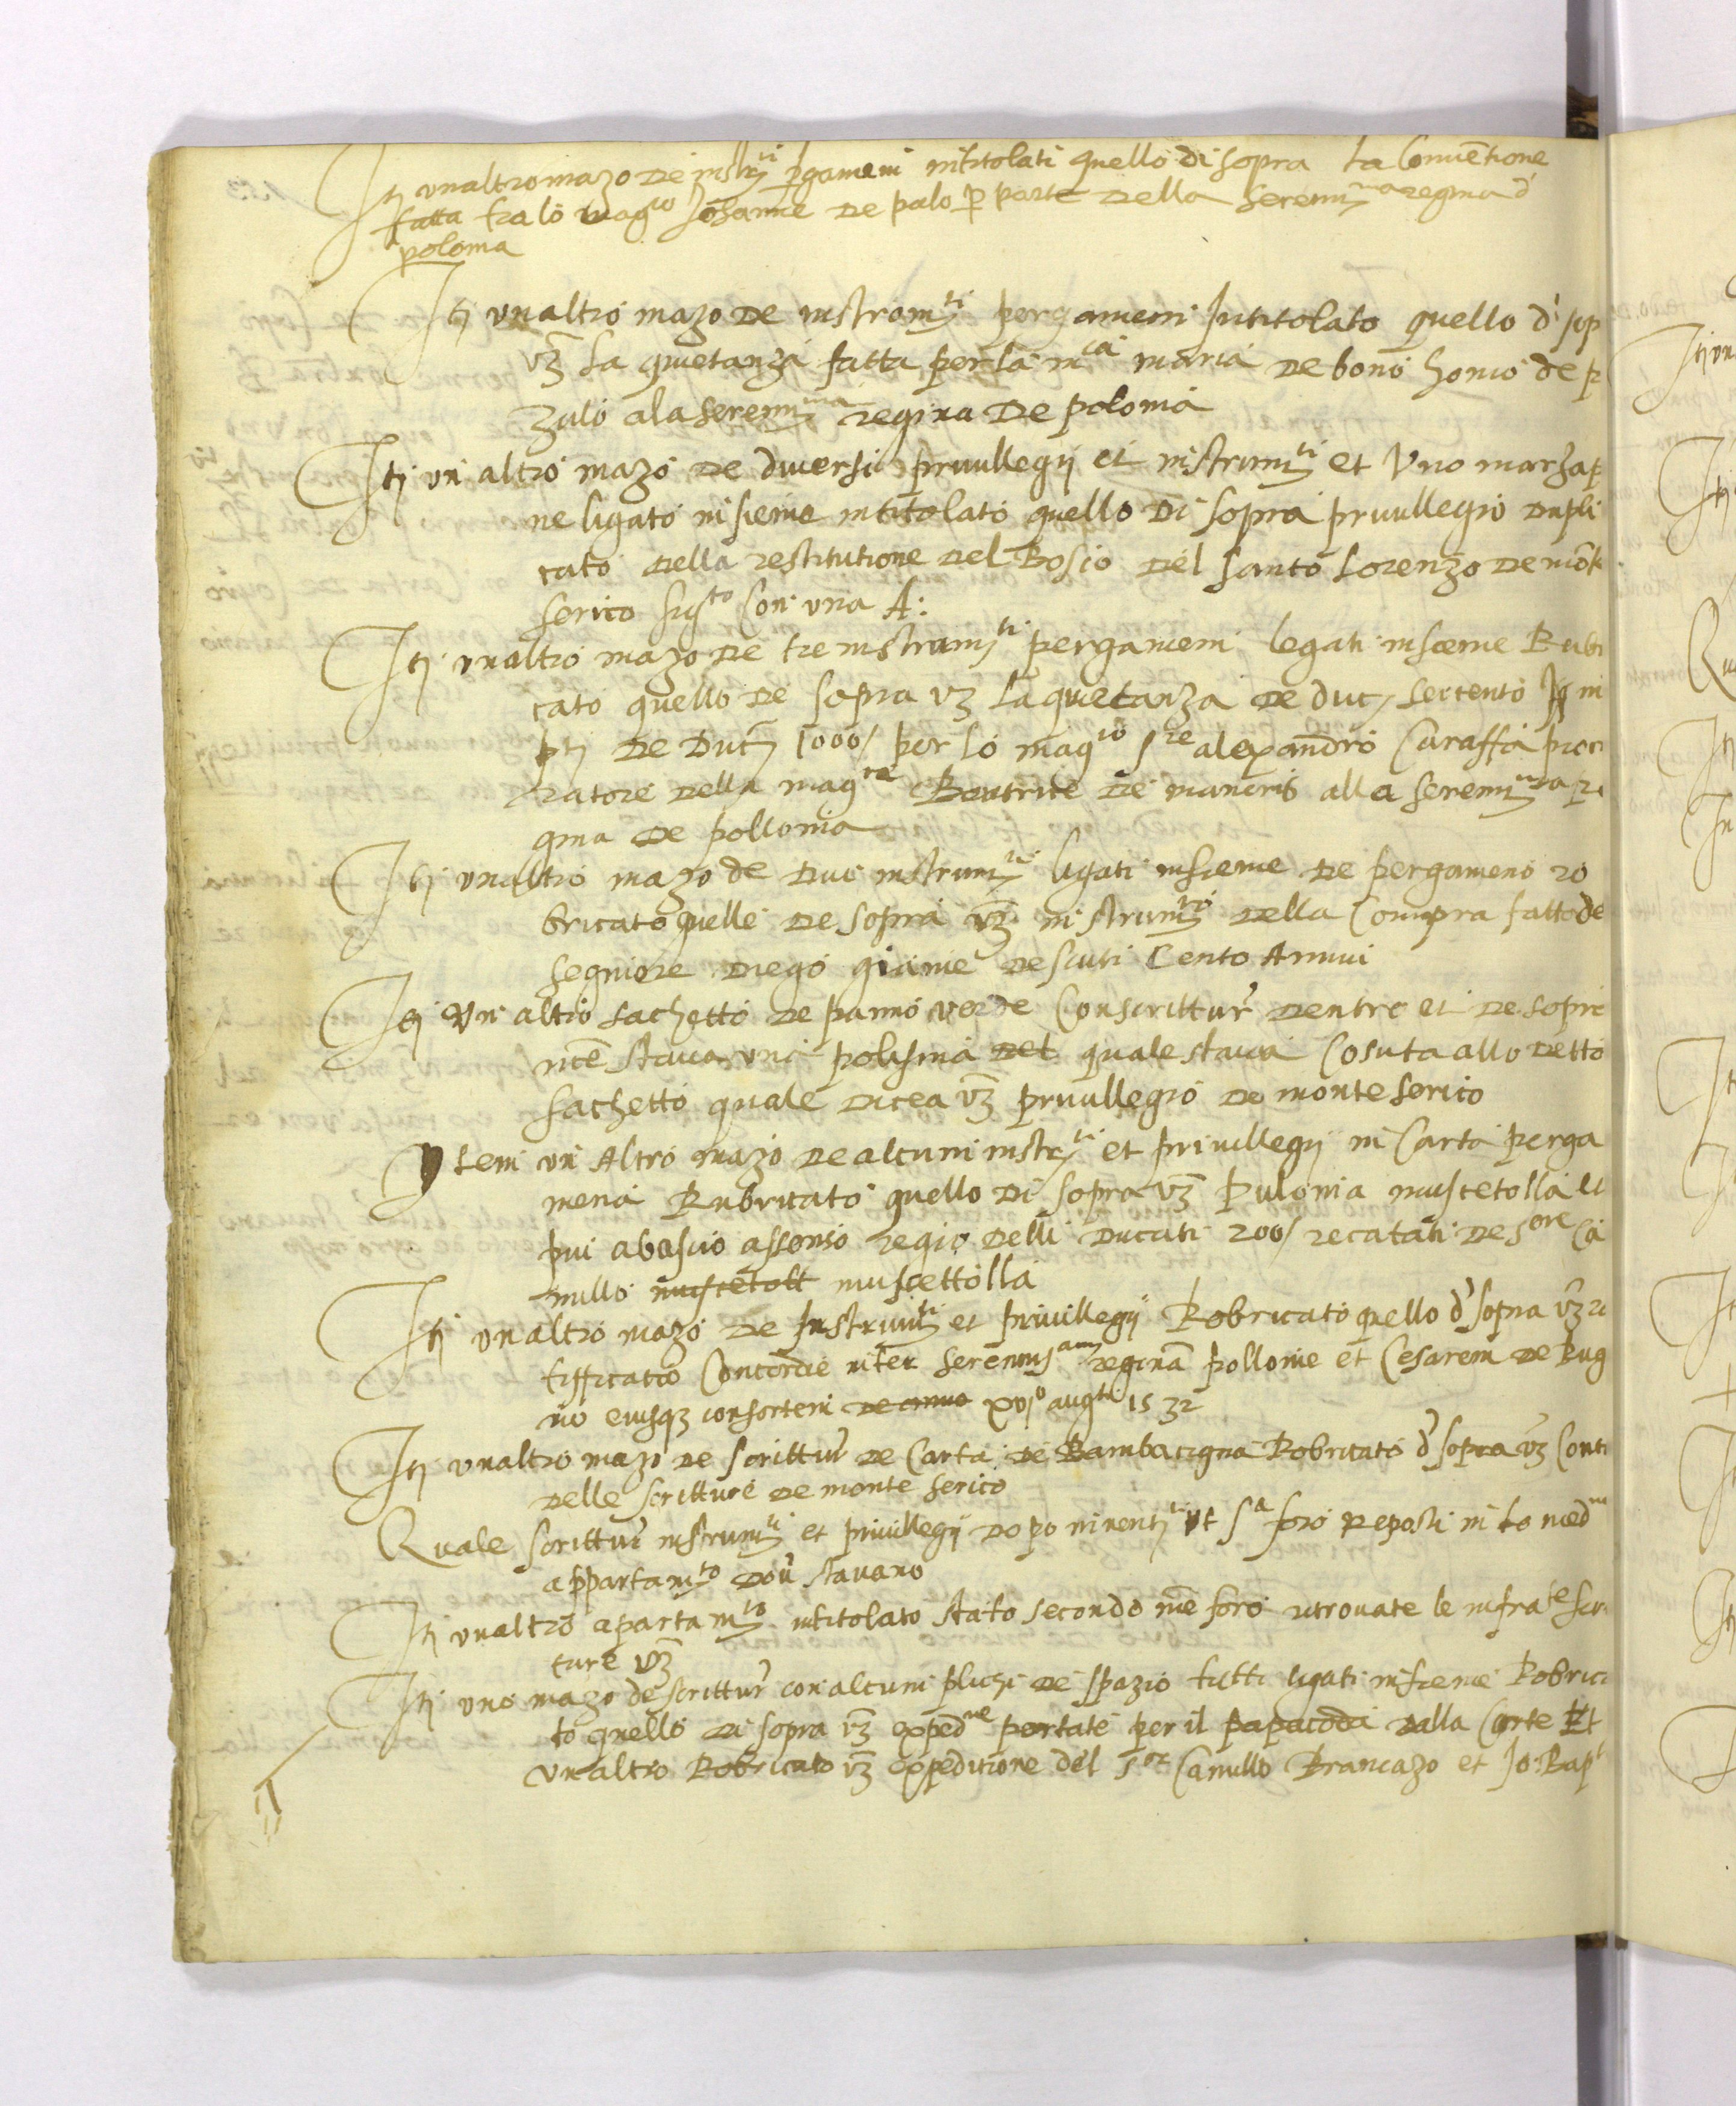 Itȝ unaltro mazo de instrȝti pergameni intitolati quello di sopra La Conventione
fatta tra lo magco Johanne de palo per parte della Serenissma regina d'
polonia
Itȝ un altro mazo de instromȝti pergameni Intitolato quello d' sop
vȝ La quietanza fatta per la mca maria de bono homo de p
zulo ala Serenȝma regina de polonia
Itȝ un altro mazo de diversi privillegij et instrumȝti et Uno marzap
ne ligato insieme intitolato quello di sopra privillegio dupli
cato della restitutione del Bosco del Santo Lorenzo de mote
serico sigto Con una A:
Itȝ unaltro mazo de tre instrumȝti pergameni legati insieme Rubri
cato quello de sopra vȝ La quietanza de ducȝ Seicento in
ptȝ de Ducȝ 1000/ per lo magco Sre alexandro Caraffa proc
ratore della magca Beatrice de maneris alla Serenȝma re
gina de pollonia
Itȝ unaltro mazo de Dui instrumȝti ligati insieme de pergameno ro
bricato quelle de sopra vȝ instrumȝto della Compra fatto de
segniore diego giaime de scuti Cento Annui
Itȝ Un altro sachetto de panno verde Con scrittur' dentro et de sopra
nce stava una polisina del quale stava Cosuta allo detto
sachetto quale dicea vȝ privillegio de monte serico
Item un Altro mazo de alcuni instrȝti et privillegij in Carta perga
mena Rubricato quello di sopra vȝ Pulonia muscetolla et
piu abascio assenso regio delli Ducati 200/ recatati de Sore Ca
millo muscetoll muscettolla
Itȝ unaltro mazo de Instrumȝti et privillegij Robricato quello d' sopra vȝ ra
tifficatio Concordie inter Serenissam reginam pollonie et Cesarem de Rug
no eiusqȝ consortem de anno xvjo augti 1532
Itȝ unaltro mazo de scrittur' de Carta de Bambacigna Robricato d' sopra vȝ Conti
delle scritture de monte serico
Quale scrittur' instrumȝti et privillegij dopo inventȝti ut Sa foro reposti in lo medmo
appartamȝto dov' stavano
Itȝ unaltro apartamȝto intitolato stato secondo nce foro ritrovate le infrate scri
ture vȝ
Itȝ uno mazo de scrittur' con alcuni plichi de spazio tutti ligati insieme Robrica
to quello di sopra vȝ expedne portate per il papacoda dalla Corte Et
unaltro Robricato vȝ expeditione del Sor Camillo Brancazo et Jo: Bapt